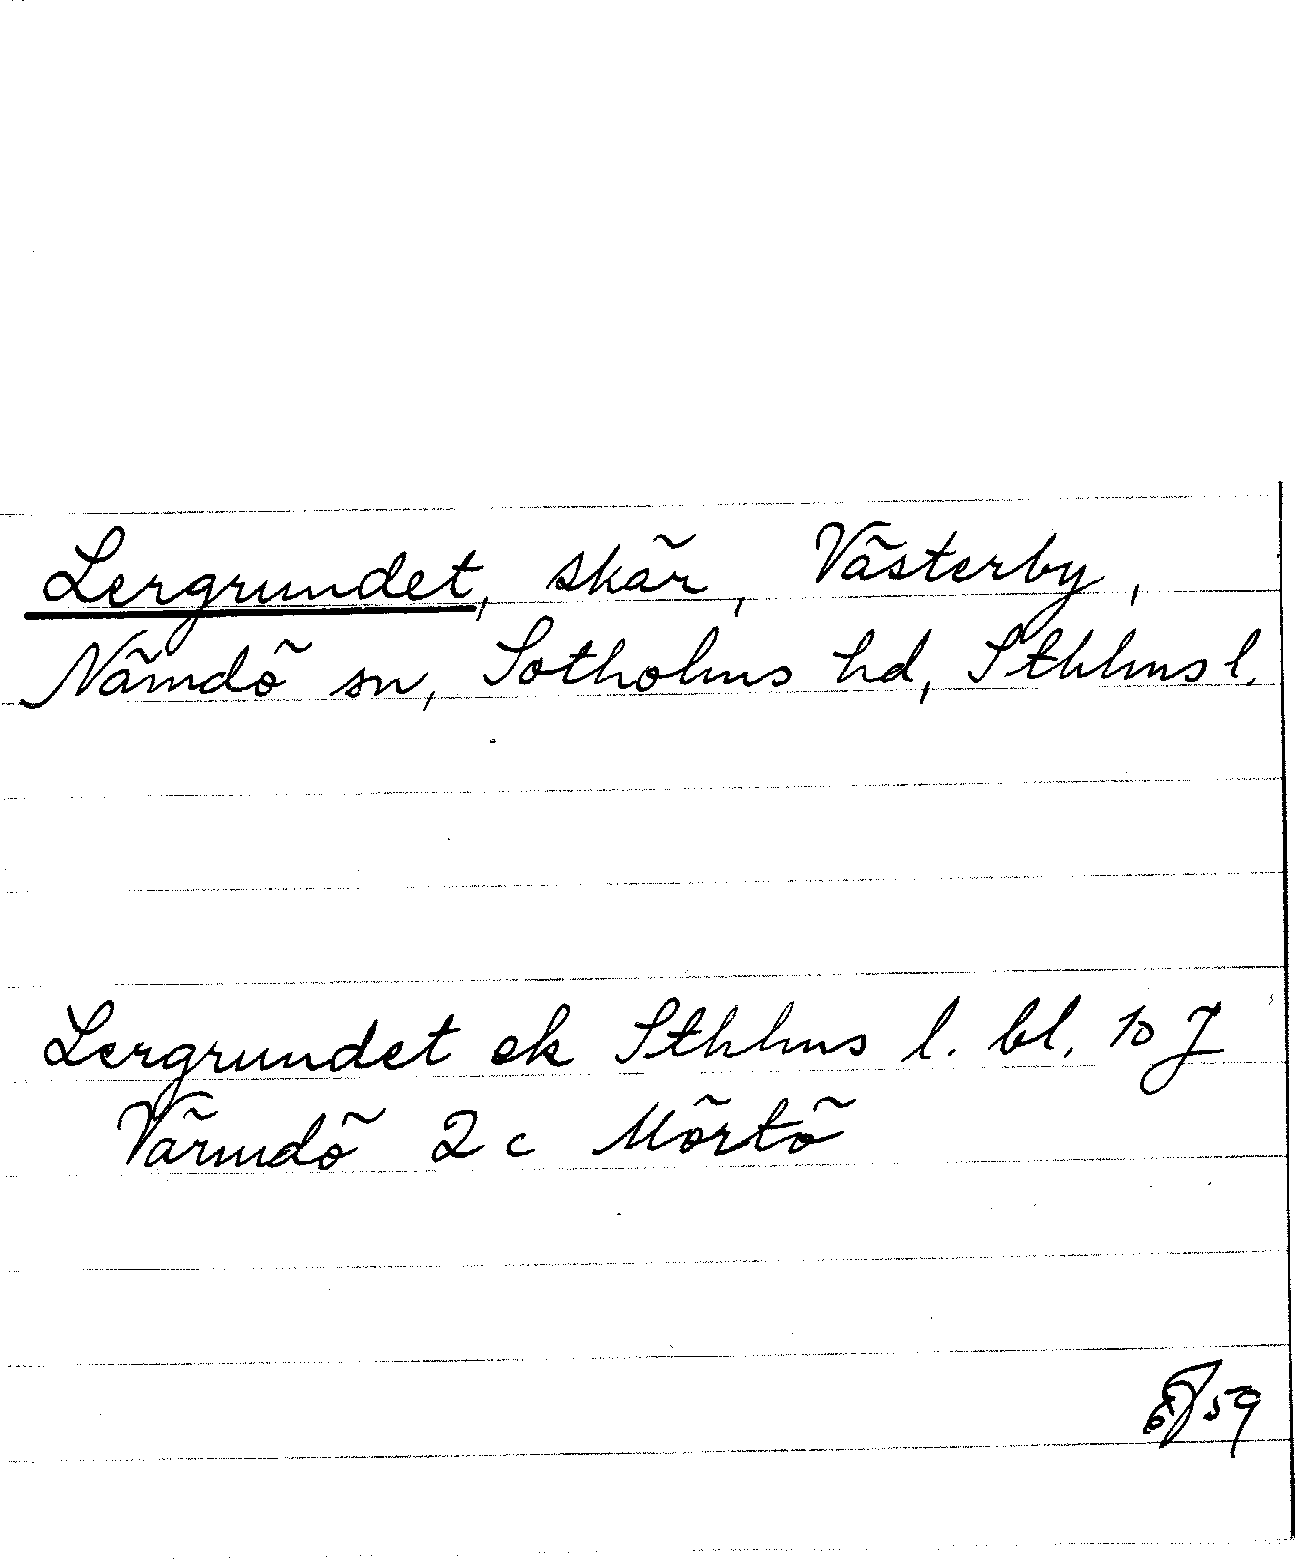 Lergrundet, skär, Västerby,
Nämdö sn, Sotholms hd, Sthlms l.
Lergrundet ek Sthlms l. bl. 10 J
Värmdö 2 c Mörtö
59